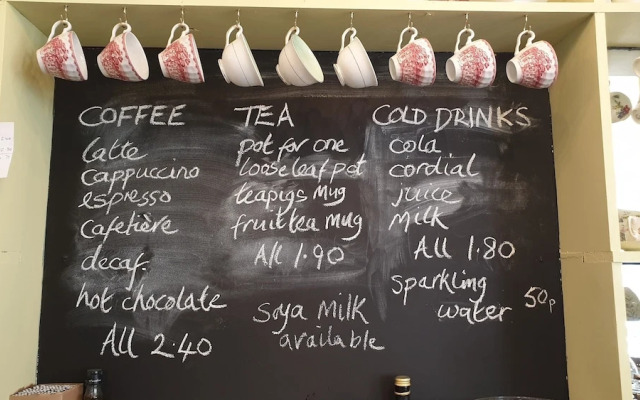 COFFEE
latte
cappuccino
espresso
cafetière
decaf.
hot chocolate
All 2.40
TEA
pot for one
looseleaf pot
teapigs mug
fruit tea mug
All 1.90
soya milk
available
COLD DRINKS
cola
cordial
juice
milk
All 1.80
sparkling
water 50p